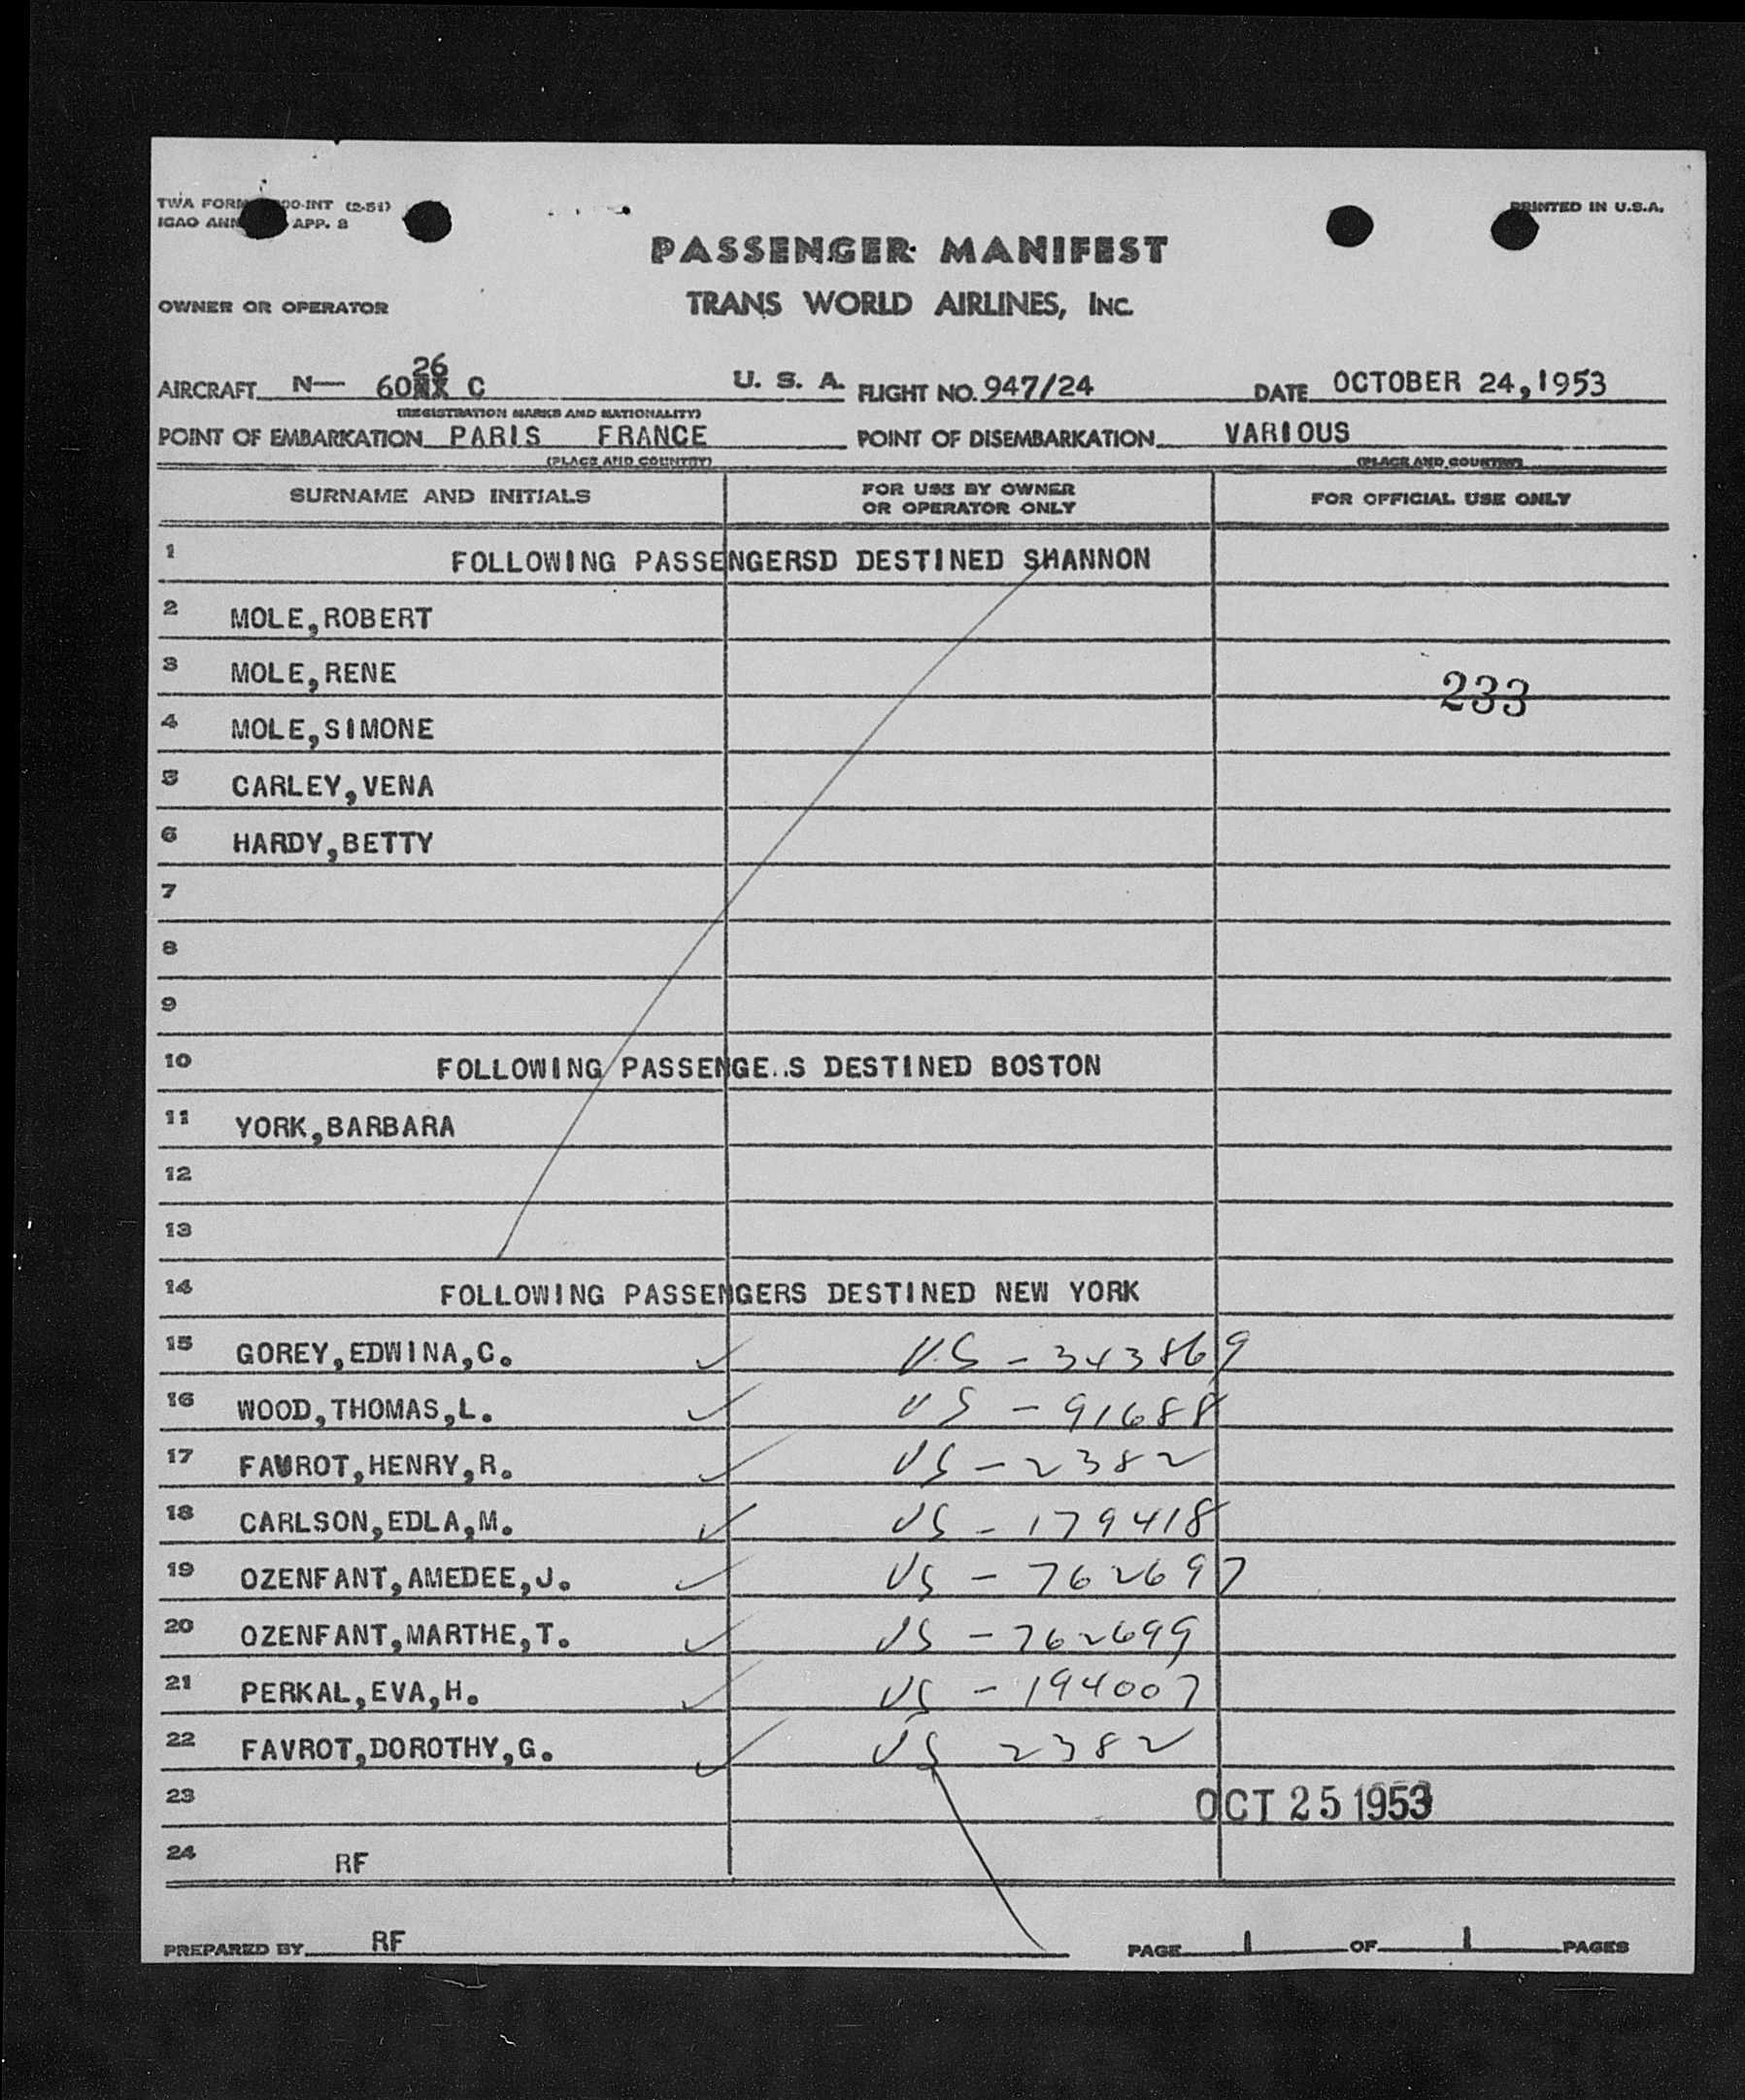 TWA FORM 00-INT (2-51)
ICAO ANN APP. 2
PRINTED IN U.S.A.
PASSENGER MANIFEST
OWNER OR OPERATOR
TRANS WORLD AIRLINES, INC.
26
AIRCRAFT N— 60 C U. S. A. FLIGHT NO. 947/24 DATE OCTOBER 24,1953
(REGISTRATION MARKS AND NATIONALITY)
POINT OF EMBARKATION PARIS FRANCE POINT OF DISEMBARKATION VARIOUS
(PLACE AND COUNTRY) (PLACE AND COUNTRY)
SURNAME AND INITIALS FOR USE BY OWNER OR OPERATOR ONLY FOR OFFICIAL USE ONLY
1 FOLLOWING PASSENGERSD DESTINED SHANNON
2 MOLE,ROBERT
3 MOLE,RENE
233
4 MOLE,SIMONE
5 CARLEY,VENA
6 HARDY,BETTY
7
8
9
10 FOLLOWING PASSENGE..S DESTINED BOSTON
11 YORK,BARBARA
12
13
14 FOLLOWING PASSENGERS DESTINED NEW YORK
15 GOREY,EDWINA,C. ✓ U.S - 343869
16 WOOD,THOMAS,L. ✓ US - 91688
17 FAVROT,HENRY,R. ✓ US - 2382
18 CARLSON,EDLA,M. ✓ US - 179418
19 OZENFANT,AMEDEE,J. ✓ US - 762697
20 OZENFANT,MARTHE,T. ✓ US - 762699
21 PERKAL,EVA,H. ✓ US - 194007
22 FAVROT,DOROTHY,G. ✓ US 2382
23 OCT 25 1953
24 RF
PREPARED BY RF PAGE 1 OF 1 PAGES